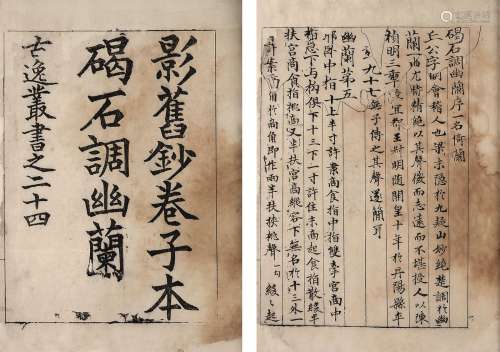 影舊鈔卷子本
碣石調幽蘭
古逸叢書之二十四
碣石調幽蘭序一名倚蘭
丘公字明會稽人也梁末隱於九疑山妙絕楚調於幽
蘭一曲尤特精絕以其聲微而志遠而不堪授人以陳
禎明三年授宜都王叔明隨開皇十年於丹陽縣卒
年九十七無子傳之其聲遂簡耳
幽蘭第五
耶臥中指十上半寸許案商食指中指雙牽宮商中
指急下与拘俱下十三下一寸許住末商起食指散緩半
扶宮商食指挑商又半扶宮商縱容下無名於十三外一
寸許案商角於商角即作兩半扶挾挑聲一句緩緩起